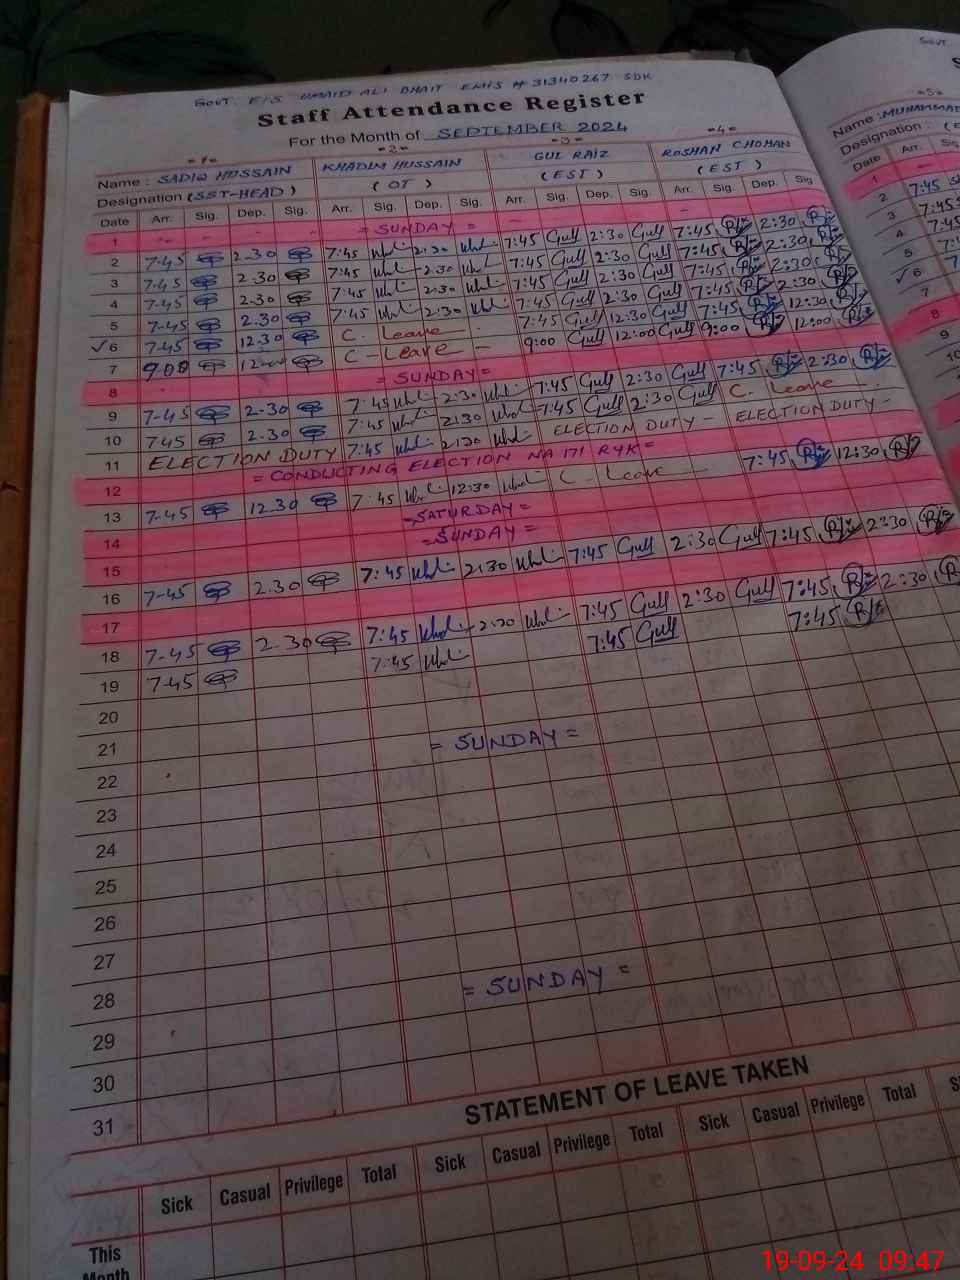 GOVT. E/S UMAID ALI BHAIT EMIS # 31340267 SDK
Staff Attendance Register
For the Month of SEPTEMBER 2024
=1= =2= =3= =4= =5=
Name : SADIQ HUSSAIN KHADIM HUSSAIN GUL RAIZ ROSHAN CHOHAN Name : MUHAMMAD
Designation (SST-HEAD) (OT) (EST) (EST) Designation : (
Date Arr. Sig. Dep. Sig. Arr. Sig. Dep. Sig. Arr. Sig. Dep. Sig. Arr. Sig. Dep. Sig Date Arr. Sig
1 = SUNDAY = 1
2 7-45 2-30 7:45 2:30 7:45 Gull 2:30 Gull 7:45 2:30 2 7:45
3 7-45 2.30 7:45 2:30 7:45 Gull 2:30 Gull 7:45 2:30 3 7:45
4 7-45 2.30 7:45 2:30 7:45 Gull 2:30 Gull 7:45 2:30 4 7:45
5 7-45 2.30 7:45 2:30 7:45 Gull 2:30 Gull 7:45 2:30 5
✓6 7-45 12.30 C. Leave 7:45 Gull 12:30 Gull 7:45 12:30 ✓6
7 9.00 12-00 C-Leave - 9:00 Gull 12:00 Gull 9:00 12:00 7
8 = SUNDAY = 8
9 7-45 2-30 7:45 2:30 7:45 Gull 2:30 Gull 7:45 2:30 9
10 7.45 2.30 7:45 2:30 7:45 Gull 2:30 Gull C. Leave 10
11 ELECTION DUTY 7:45 2:30 ELECTION DUTY - ELECTION DUTY -
12 = CONDUCTING ELECTION NA 171 RYK =
13 7-45 12.30 7:45 12:30 C- Leave 7:45 12:30
14 =SATURDAY=
15 =SUNDAY=
16 7-45 2.30 7:45 2:30 7:45 Gull 2:30 Gull 7:45 2:30
17
18 7-45 2.30 7:45 2:30 7:45 Gull 2:30 Gull 7:45 2:30
19 7-45 7:45 7:45 Gull 7:45
20
21
22 = SUNDAY =
23
24
25
26
27
28
29 = SUNDAY =
30
31
STATEMENT OF LEAVE TAKEN
Sick Casual Privilege Total Sick Casual Privilege Total Sick Casual Privilege Total
This
Month
19-09-24 09:47